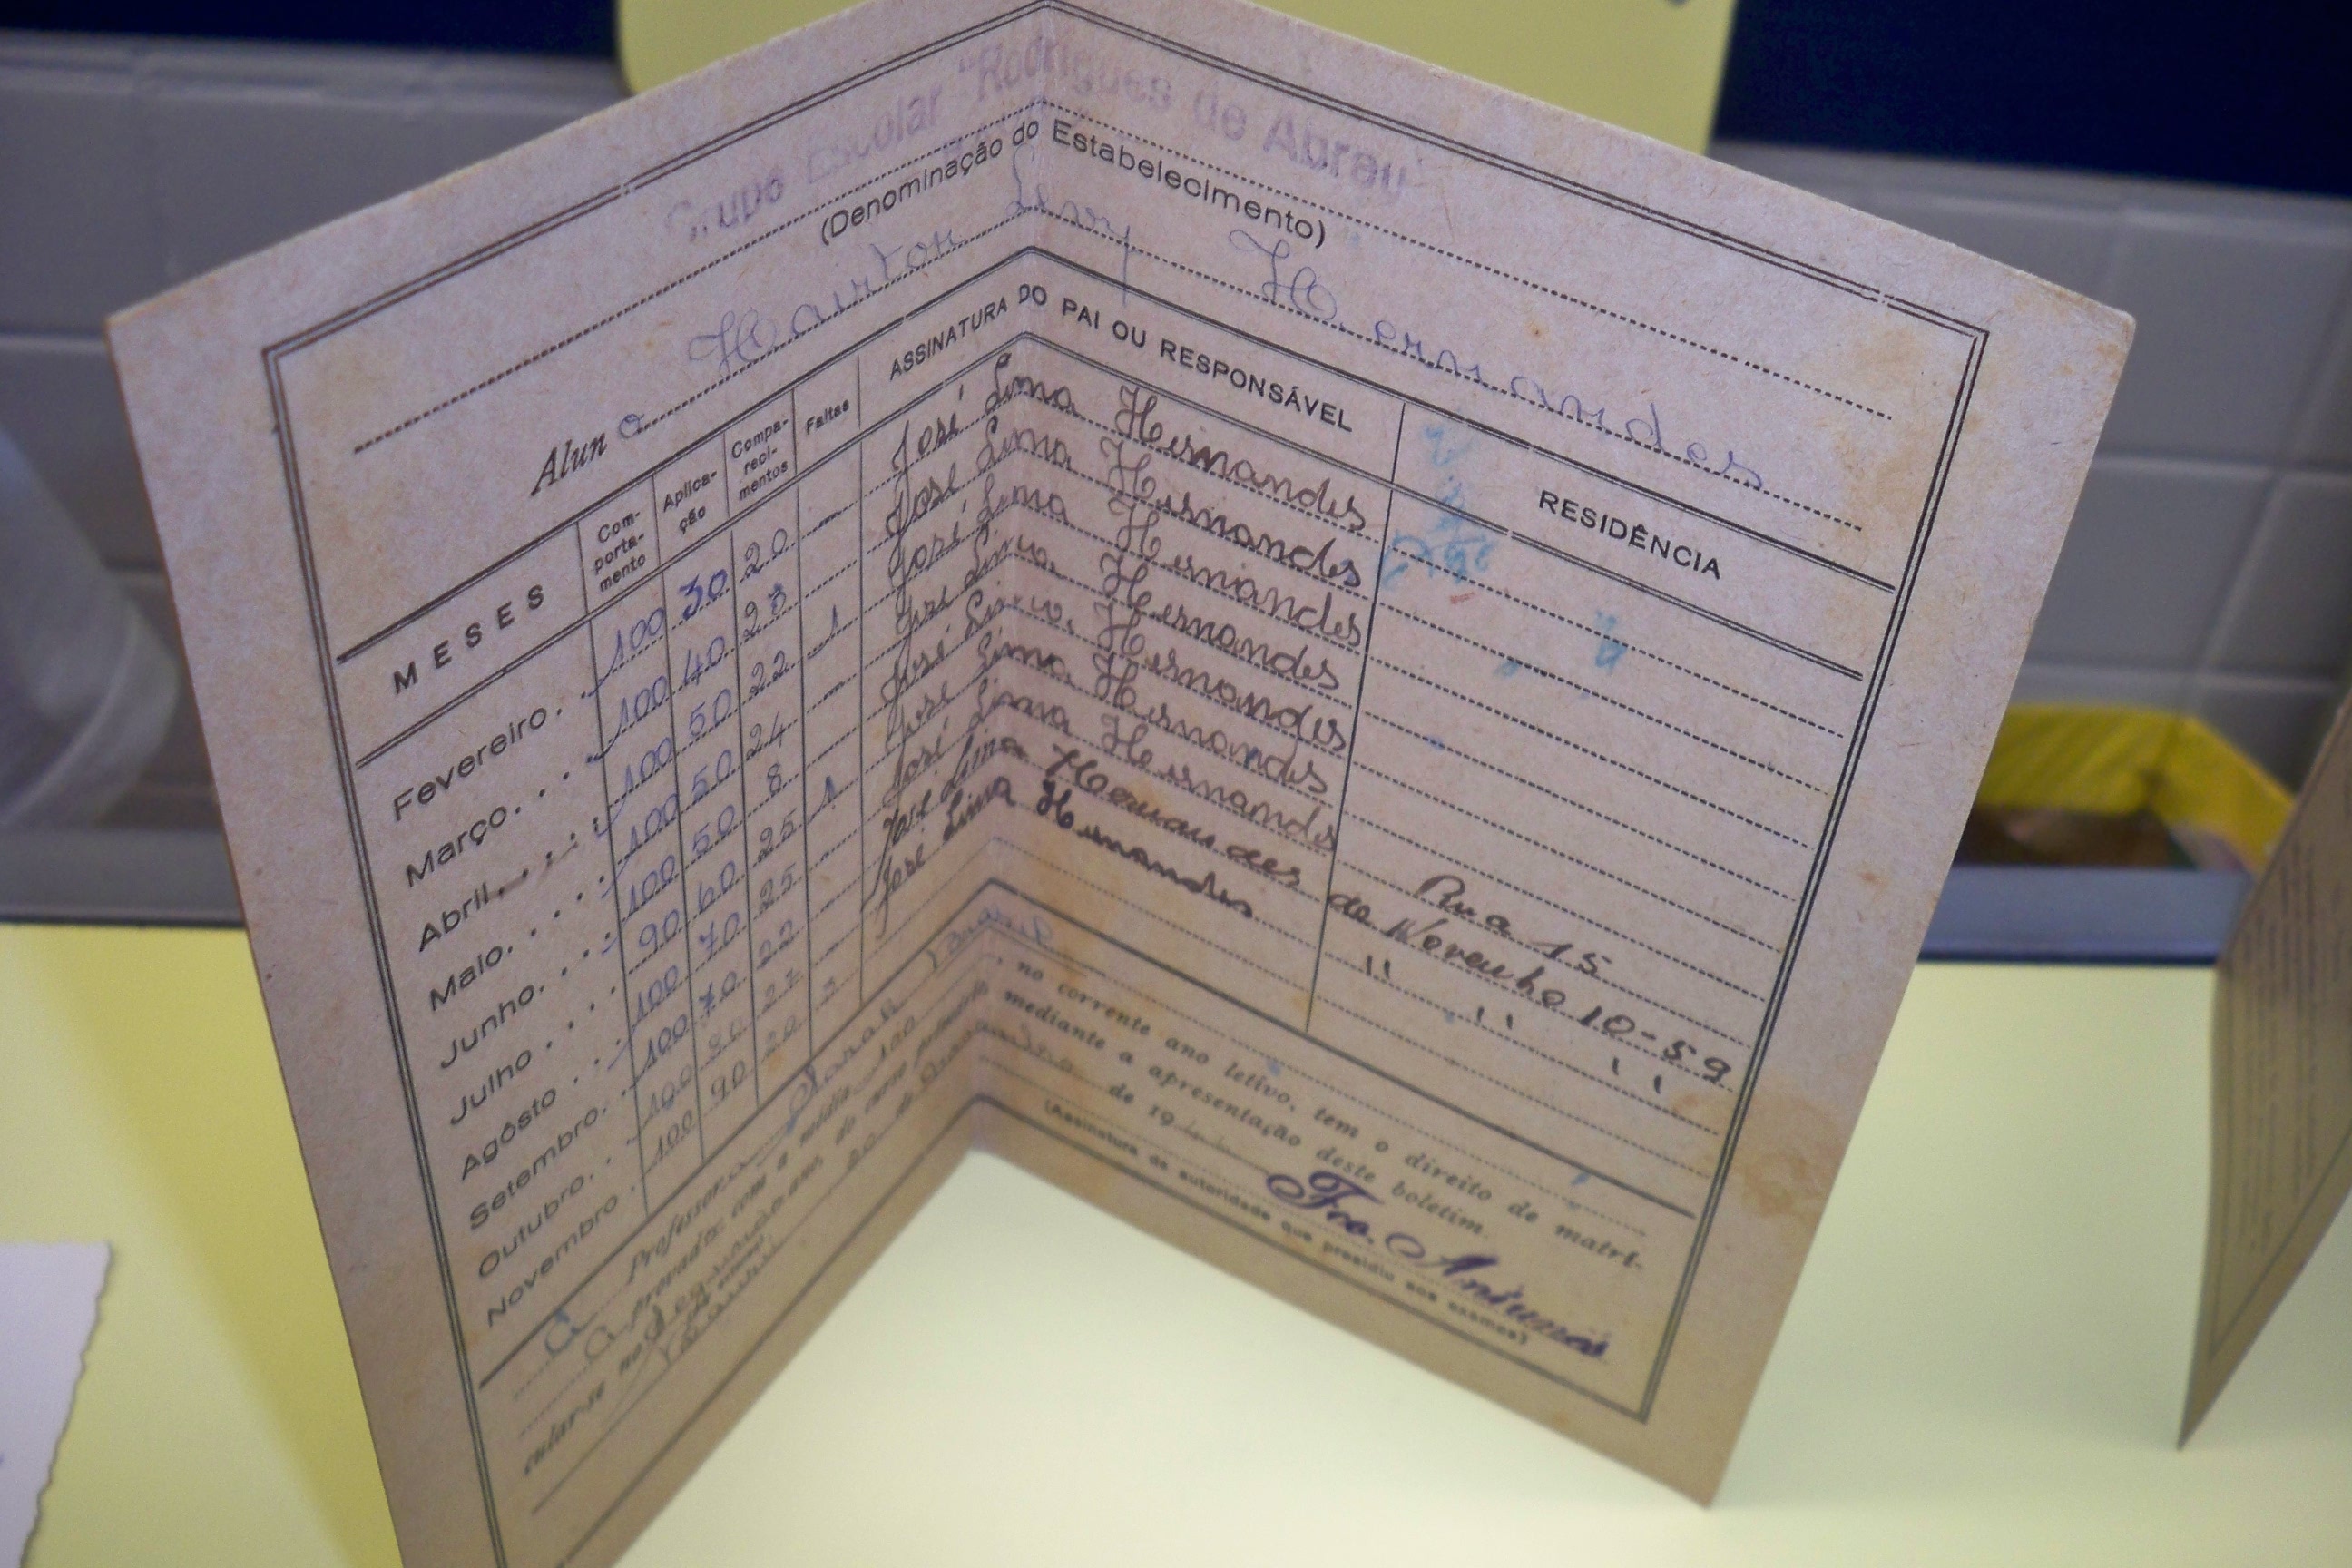 Grupo Escolar "Rodrigues de Abreu"
(Denominação do Estabelecimento)
Aluno Hairton Levy Hernandes
MESES Com-porta-mento Aplica-ção Compa-reci-mentos Faltas ASSINATURA DO PAI OU RESPONSÁVEL RESIDÊNCIA
Fevereiro. . 100 30 20 — José Lima Hernandes
Março. . . . 100 40 23 José Lima Hernandes
Abril. . . . 100 50 22 1 José Lima Hernandes
Maio. . . . 100 50 24 — José Lima Hernandes
Junho. . . . 100 50 8 José Lima Hernandes
Julho . . . 90 60 25 1 José Lima Hernandes
Agôsto . . . 100 70 25 José Lima Hernandes Rua 15
Setembro. . 100 70 22 José Lima Hernandes de Novembro 10-59
Outubro. . . 100 80 José Lima Hernandes " " "
Novembro . 100 90 20
a Professora
Aprovado com a média 100, no corrente ano letivo, tem o direito de matri-
cular-se no do curso primário mediante a apresentação deste boletim.
de de 19
Fco. Antunes
(Assinatura da autoridade que presidiu aos exames)